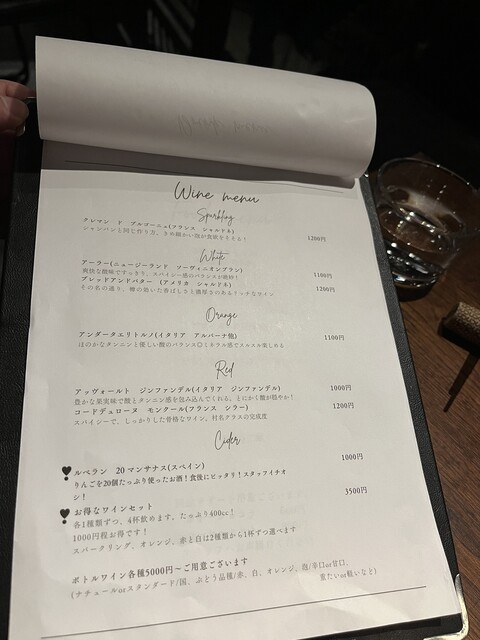 Wine menu
Sparkling
クレマン ド ブルゴーニュ(フランス シャルドネ) 1200円
シャンパンと同じ作り方。きめ細かい泡が食欲をそそる!
White
アーラー(ニュージーランド ソーヴィニオンブラン) 1100円
爽快な酸味ですっきり、スパイシー感のバランスが絶妙!
ブレッドアンドバター (アメリカ シャルドネ) 1200円
その名の通り、樽の効いた香ばしさと濃厚さのあるリッチなワイン
Orange
アンダータエリトルノ(イタリア アルバーナ他) 1100円
ほのかなタンニンと優しい酸のバランス◎ミネラル感でスルスル楽しめる
Red
アッヴォールト ジンファンデル(イタリア ジンファンデル) 1000円
豊かな果実味で酸とタンニン感を包み込んでくれる。とにかく酸が穏やか!
コードデュローヌ モンクール(フランス シラー) 1200円
スパイシーで、しっかりした骨格なワイン。村名クラスの完成度
Cider
ルベラン 20マンサナス(スペイン) 1000円
りんごを20個たっぷり使ったお酒!食後にピッタリ!スタッフイチオ
シ!
お得なワインセット 3500円
各1種類ずつ、4杯飲めます。たっぷり400cc!
1000円程お得です!
スパークリング、オレンジ、赤と白は2種類から1杯ずつ選べます
ボトルワイン各種5000円〜ご用意ございます
(ナチュールorスタンダード/国、ぶどう品種/赤、白、オレンジ、泡/辛口or甘口、
重たいor軽いなど)